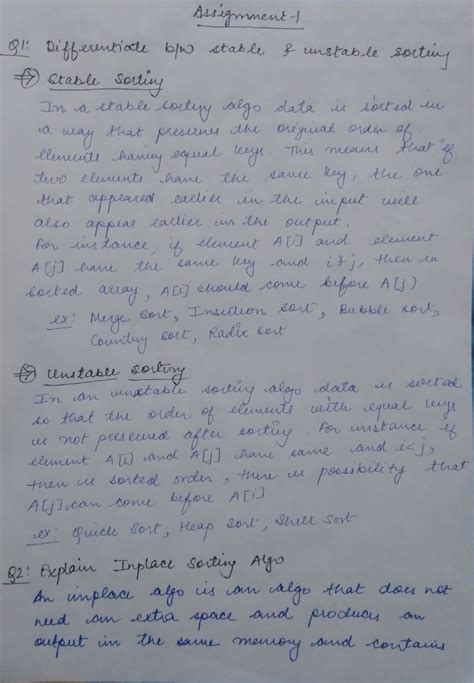 Assignment-1
Q1: Differentiate b/w stable & unstable sorting
→ Stable Sorting
In a stable sorting algo data is sorted in
a way that preserves the original order of
elements having equal keys. This means that if
two elements have the same key, the one
that appeared earlier in the input will
also appear earlier in the output.
For instance, if element A[i] and element
A[j] have the same key and i<j, then in
sorted array, A[i] should come before A[j]
ex: Merge Sort, Insertion Sort, Bubble Sort,
Counting Sort, Radix Sort
→ Unstable Sorting
In an unstable sorting algo data is sorted
so that the order of elements with equal keys
is not preserved after sorting. For instance if
element A[i] and A[j] have same and i<j,
then is sorted order, there is possibility that
A[j] can come before A[i]
ex: Quick Sort, Heap Sort, Shell Sort
Q2: Explain Inplace Sorting Algo
An inplace algo is an algo that does not
need an extra space and produces an
output in the same memory and contains